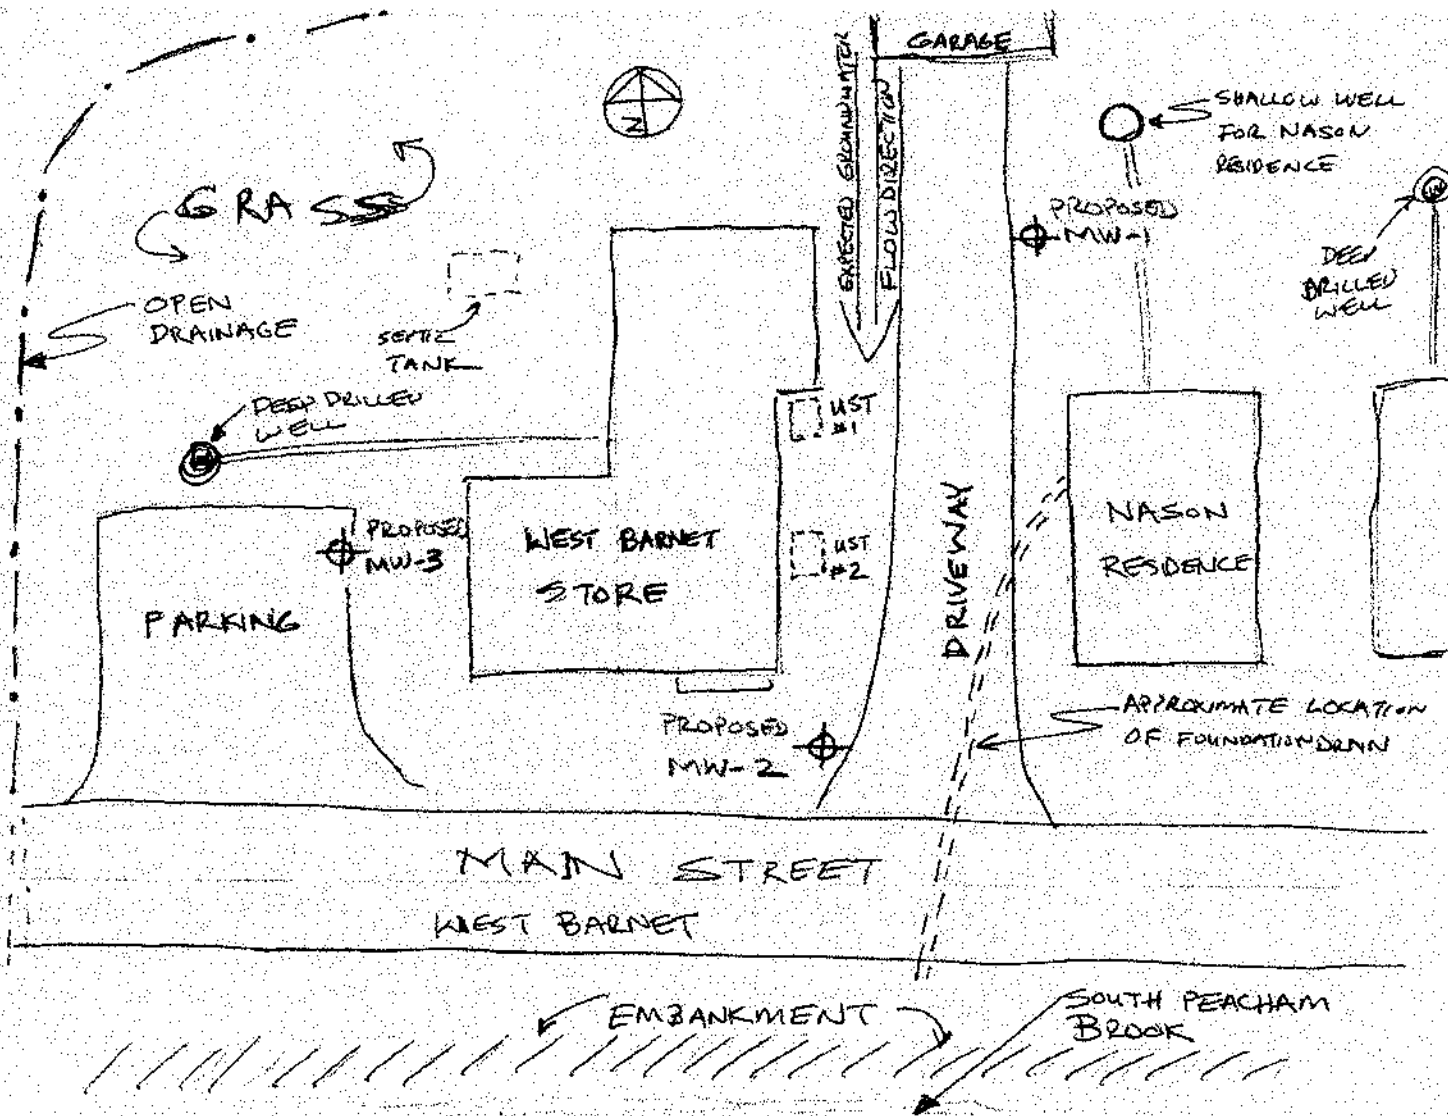 GARAGE
EXPECTED GROUNDWATER
FLOW DIRECTION
N
SHALLOW WELL
FOR NASON
RESIDENCE
GRASS
PROPOSED
MW-1
DEEP
DRILLED
WELL
OPEN
DRAINAGE
SEPTIC
TANK
DEEP DRILLED
WELL
UST
#1
PROPOSED
MW-3
WEST BARNET
STORE
UST
#2
DRIVEWAY
NASON
RESIDENCE
PARKING
PROPOSED
MW-2
APPROXIMATE LOCATION
OF FOUNDATION DRAIN
MAIN STREET
WEST BARNET
EMBANKMENT
SOUTH PEACHAM
BROOK